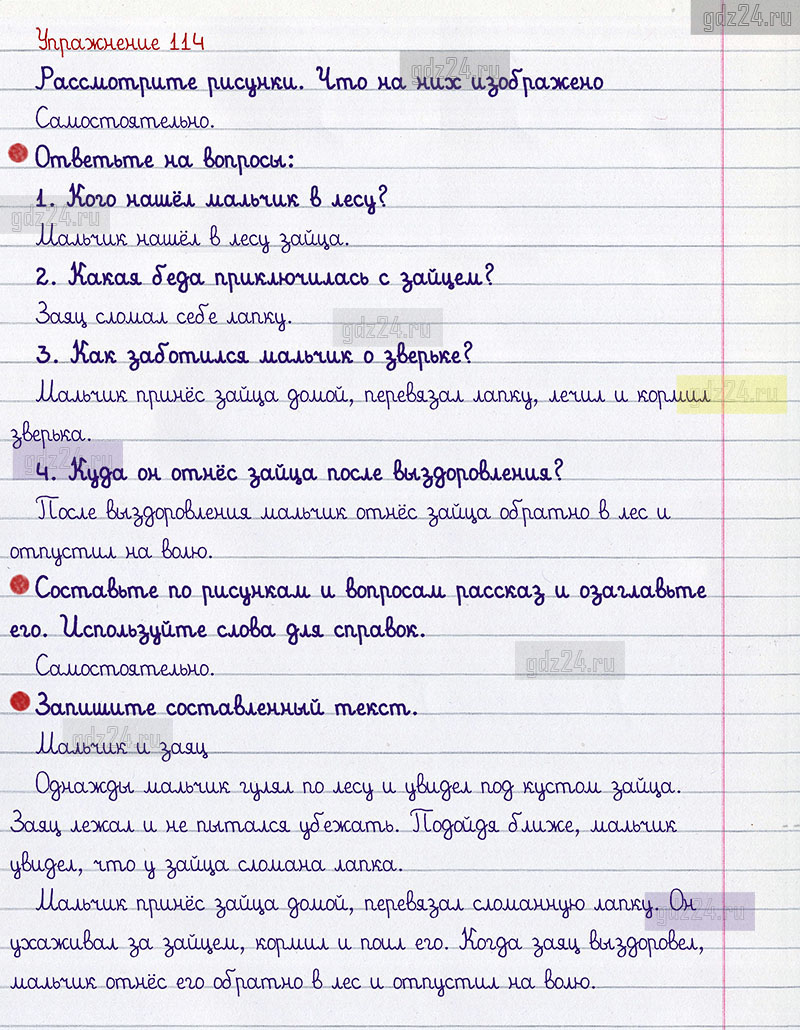 gdz24.ru
Упражнение 114
Рассмотрите рисунки. Что на них изображено
gdz24.ru
Самостоятельно.
Ответьте на вопросы:
1. Кого нашёл мальчик в лесу?
gdz24.ru
Мальчик нашёл в лесу зайца.
2. Какая беда приключилась с зайцем?
Заяц сломал себе лапку.
gdz24.ru
3. Как заботился мальчик о зверьке?
Мальчик принёс зайца домой, перевязал лапку, лечил и кормил
gdz24.ru
зверька.
gdz24.ru
4. Куда он отнёс зайца после выздоровления?
После выздоровления мальчик отнёс зайца обратно в лес и
отпустил на волю.
Составьте по рисункам и вопросам рассказ и озаглавьте
его. Используйте слова для справок.
Самостоятельно.
gdz24.ru
Запишите составленный текст.
gdz24.ru
Мальчик и заяц
Однажды мальчик гулял по лесу и увидел под кустом зайца.
Заяц лежал и не пытался убежать. Подойдя ближе, мальчик
увидел, что у зайца сломана лапка.
Мальчик принёс зайца домой, перевязал сломанную лапку. Он
gdz24.ru
ухаживал за зайцем, кормил и поил его. Когда заяц выздоровел,
мальчик отнёс его обратно в лес и отпустил на волю.